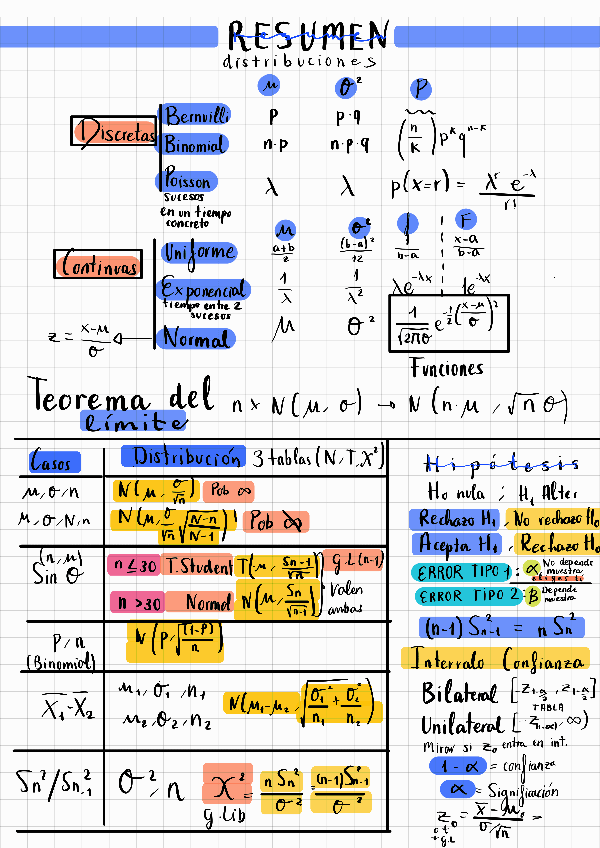 RESUMEN
distribuciones
μ σ² P
Discretas
Bernvilli p p·q
Binomial n·p n·p·q (n/K) p^K q^n-K
Poisson λ λ p(x=r) = λ^r e^-λ / r!
sucesos
en un tiempo
concreto
μ σ² f F
Continuas
Uniforme a+b/2 (b-a)²/12 1/b-a x-a/b-a
Exponencial 1/λ 1/λ² λe^-λx 1e^-λx
tiempo entre 2
sucesos
z = x-μ/σ
Normal μ σ² 1/√2πσ e^-1/2(x-μ/σ)²
Funciones
Teorema del n x N(μ, σ) → N(n·μ, √n σ)
límite
Casos Distribución 3 tablas (N,T,X²)
μ, σ, n N(μ, σ/√n) Pob ∞
μ, σ, N, n N(μ, σ/√n √N-n/N-1) Pob ∞
(n, μ)
Sin σ
n ≤ 30 T.Student T(μ, Sn-1/√n) G.L(n-1)
n > 30 Normal N(μ, Sn/√n-1) Valen
ambas
P/n
(Binomial)
N(P, √(1-P)/n)
X₁-X₂ μ₁, σ₁, n₁
μ₂, σ₂, n₂
N(μ₁-μ₂, √σ₁²/n₁ + σ₂²/n₂)
Sn²/Sn-1² σ², n X² = nSn²/σ² = (n-1)Sn-1²/σ²
g.lib
Hipótesis
H₀ nula ; H₁ Alter
Rechazo H₁, No rechazo H₀
Acepta H₁, Rechazo H₀
ERROR TIPO 1: α No depende
muestra
ERROR TIPO 2= β Depende
muestra
(n-1) S²n-1 = n Sn²
Intervalo Confianza
Bilateral [z 1-α/2, z 1-α/2]
TABLA
Unilateral [-z(1-α), ∞)
Mirar si z₀ entra en int.
1-α = confianza
α = Signifiación
z₀ = x̄-μ₀/σ/√n =
o t₀
+g.L